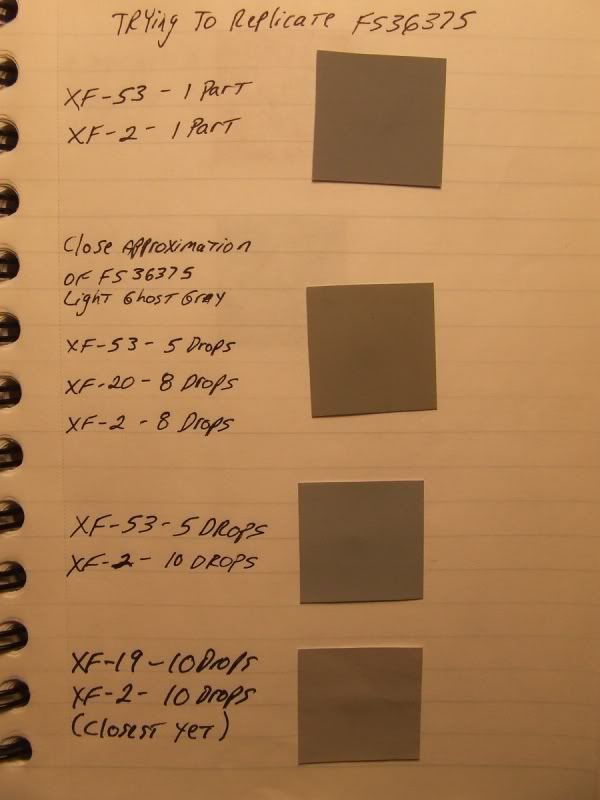 Trying To Replicate FS36375
XF-53 - 1 Part
XF-2 - 1 Part
Close Approximation
OF FS 36375
Light Ghost Gray
XF-53 - 5 Drops
XF-20 - 8 Drops
XF-2 - 8 Drops
XF-53 - 5 DROPS
XF-2 - 10 DROPS
XF-19 - 10 Drops
XF-2 - 10 Drops
(Closest yet)